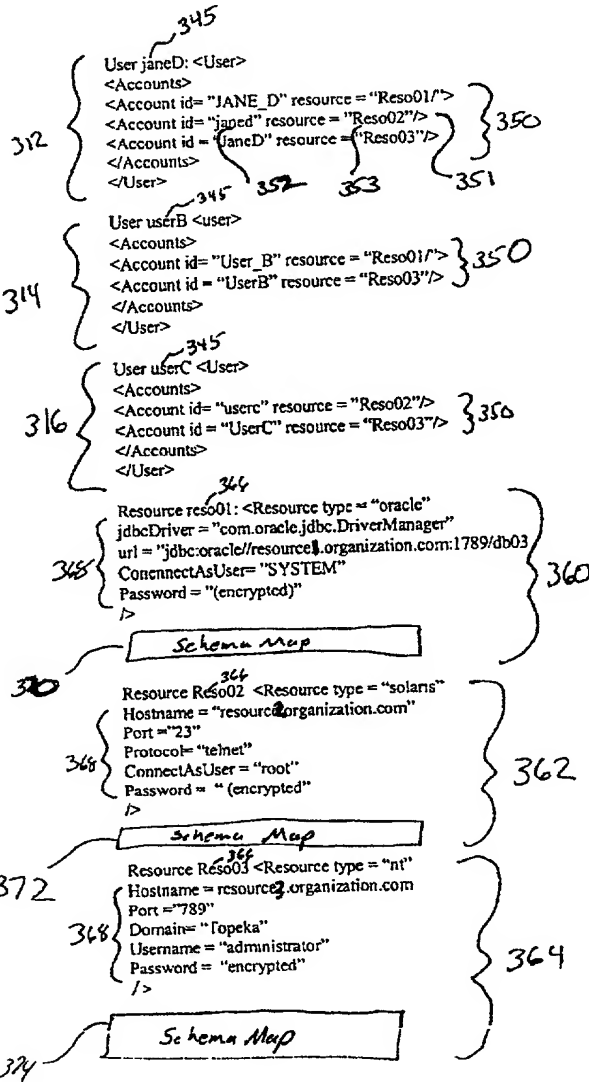 345
User janeD: <User>
<Accounts>
<Account id= "JANE_D" resource = "Reso01/">
<Account id= "janed" resource = "Reso02"/>
<Account id = "JaneD" resource = "Reso03"/>
</Accounts>
</User>
312
350
352
353
351
345
User userB <user>
<Accounts>
<Account id= "User_B" resource = "Reso01/">
<Account id = "UserB" resource = "Reso03"/>
</Accounts>
</User>
314
350
345
User userC <User>
<Accounts>
<Account id= "userc" resource = "Reso02"/>
<Account id = "UserC" resource = "Reso03"/>
</Accounts>
</User>
316
350
366
Resource reso01: <Resource type = "oracle"
jdbcDriver = "com.oracle.jdbc.DriverManager"
url = "jdbc:oracle//resource1.organization.com:1789/db03
ConennectAsUser= "SYSTEM"
Password = "(encrypted)"
/>
368
360
Schema Map
370
366
Resource Reso02 <Resource type = "solaris"
Hostname = "resource2organization.com"
Port ="23"
Protocol= "telnet"
ConnectAsUser = "root"
Password = " (encrypted"
/>
368
362
Schema Map
372
366
Resource Reso03 <Resource type = "nt"
Hostname = resource3.organization.com
Port ="789"
Domain= "Topeka"
Username = "administrator"
Password = "encrypted"
/>
368
364
Schema Map
374